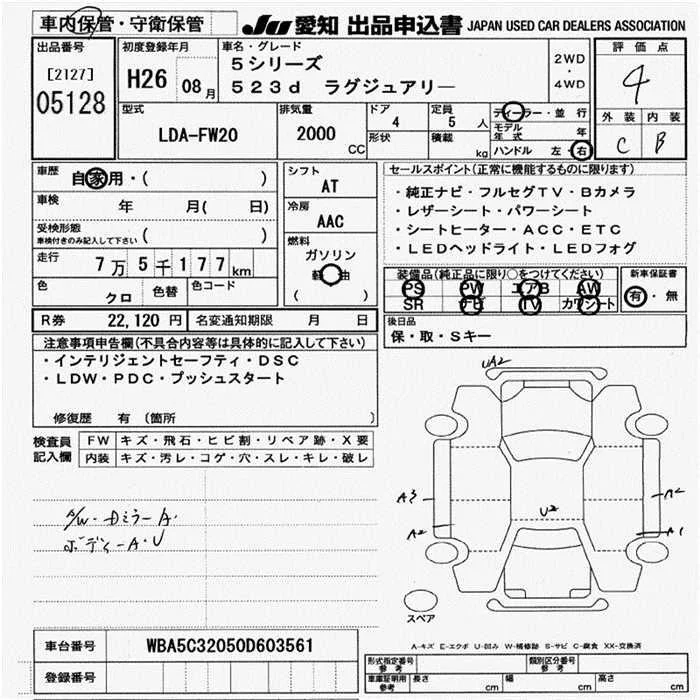 車内保管・守衛保管
JU 愛知 出品申込書 JAPAN USED CAR DEALERS ASSOCIATION
出品番号
[2127]
05128
初度登録年月
H26 08月
車名・グレード
5シリーズ
523d ラグジュアリー
2WD
・
4WD
評価点
4
外装 内装
C B
型式
LDA-FW20
排気量
2000
CC
ドア
4
形状
定員
5 人
積載
kg
ディーラー・並行
モデル年式 年
ハンドル 左・右
車歴
自家用・( )
車検
年 月( 日)
受検形態
車検付きのみ記入して下さい ( )
走行
7万5千177km
色
クロ
色替
色コード
シフト
AT
冷房
AAC
燃料
ガソリン
軽油
( )
セールスポイント(正常に機能するものに限ります)
・純正ナビ・フルセグTV・Bカメラ
・レザーシート・パワーシート
・シートヒーター・ACC・ETC
・LEDヘッドライト・LEDフォグ
装備品(純正品に限り○をつけてください)
PS PW エアB AW
SR ナビ TV カワシート
新車保証書
有・無
R券 22,120 円
名変通知期限 月 日
後日品
保・取・Sキー
注意事項申告欄(不具合内容等は具体的に記入して下さい)
・インテリジェントセーフティ・DSC
・LDW・PDC・プッシュスタート
修復歴 有 (箇所 )
検査員
記入欄
FW キズ・飛石・ヒビ割・リペア跡・X要
内装 キズ・汚レ・コゲ・穴・スレ・キレ・破レ
A/W・Dミラー A・
ボディーA・U
UA2
A3
A2
U2
A2
A1
スペア
A-キズ E-エクボ U-凹み W-補修跡 S-サビ C-腐食 XX-交換済
車台番号 WBA5C32050D603561
登録番号
形式指定番号
参考
類別区分番号
参考
車庫証明用
参考
長さ cm
幅 cm
高さ cm